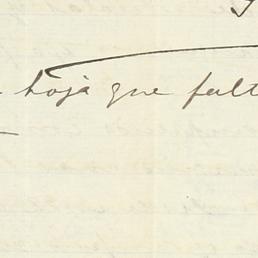 hoja que falt